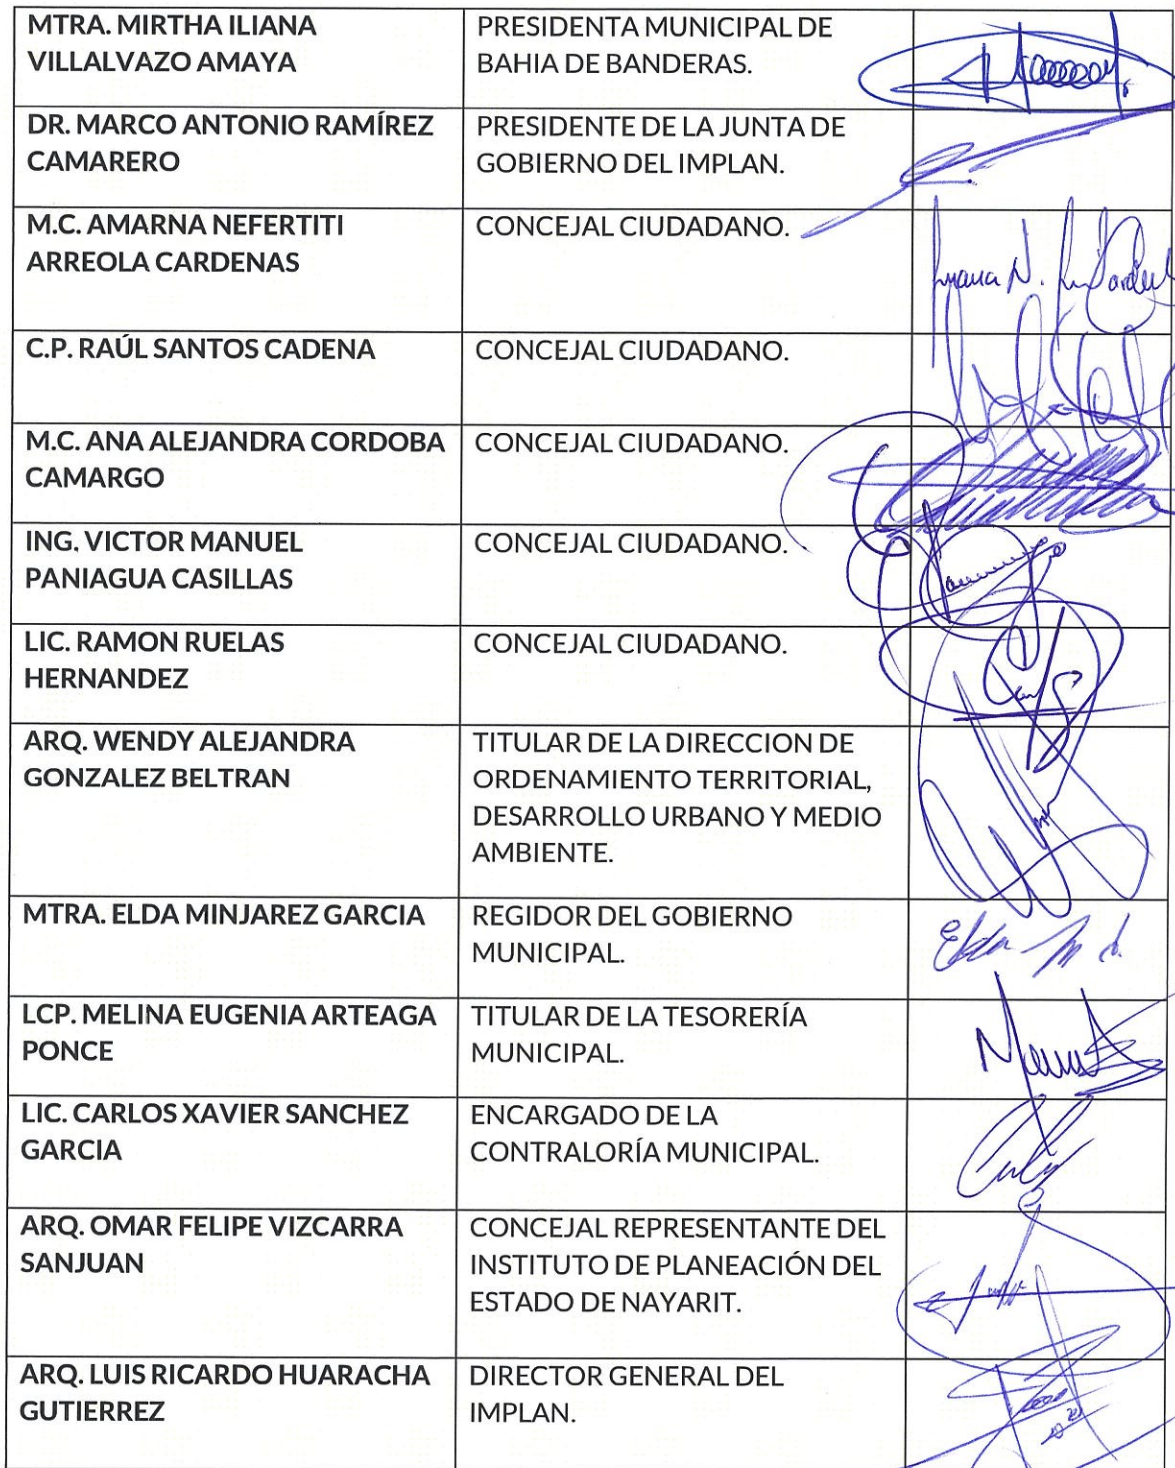 MTRA. MIRTHA ILIANA
VILLALVAZO AMAYA
PRESIDENTA MUNICIPAL DE
BAHIA DE BANDERAS.
DR. MARCO ANTONIO RAMÍREZ
CAMARERO
PRESIDENTE DE LA JUNTA DE
GOBIERNO DEL IMPLAN.
M.C. AMARNA NEFERTITI
ARREOLA CARDENAS
CONCEJAL CIUDADANO.
C.P. RAÚL SANTOS CADENA
CONCEJAL CIUDADANO.
M.C. ANA ALEJANDRA CORDOBA
CAMARGO
CONCEJAL CIUDADANO.
ING. VICTOR MANUEL
PANIAGUA CASILLAS
CONCEJAL CIUDADANO.
LIC. RAMON RUELAS
HERNANDEZ
CONCEJAL CIUDADANO.
ARQ. WENDY ALEJANDRA
GONZALEZ BELTRAN
TITULAR DE LA DIRECCION DE
ORDENAMIENTO TERRITORIAL,
DESARROLLO URBANO Y MEDIO
AMBIENTE.
MTRA. ELDA MINJAREZ GARCIA
REGIDOR DEL GOBIERNO
MUNICIPAL.
Elda M
LCP. MELINA EUGENIA ARTEAGA
PONCE
TITULAR DE LA TESORERÍA
MUNICIPAL.
LIC. CARLOS XAVIER SANCHEZ
GARCIA
ENCARGADO DE LA
CONTRALORÍA MUNICIPAL.
ARQ. OMAR FELIPE VIZCARRA
SANJUAN
CONCEJAL REPRESENTANTE DEL
INSTITUTO DE PLANEACIÓN DEL
ESTADO DE NAYARIT.
ARQ. LUIS RICARDO HUARACHA
GUTIERREZ
DIRECTOR GENERAL DEL
IMPLAN.